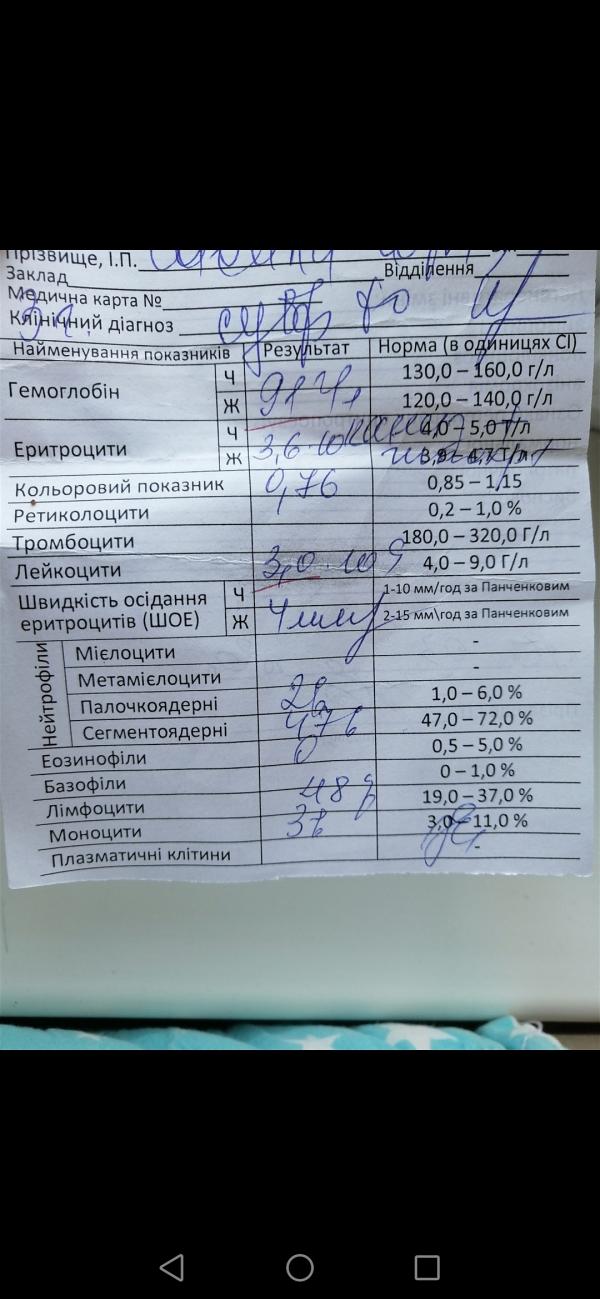 Прізвище, І.П.
Заклад Відділення
Медична карта №
Клінічний діагноз
Найменування показників Результат Норма (в одиницях СІ)
Гемоглобін Ч 130,0 – 160,0 г/л
Ж 91 120,0 – 140,0 г/л
Еритроцити Ч 4,0 – 5,0 Т/л
Ж 3,6·10 3,9 – 4,7 Т/л
Кольоровий показник 0,76 0,85 – 1,15
Ретиколоцити 0,2 – 1,0 %
Тромбоцити 180,0 – 320,0 Г/л
Лейкоцити 3,0·10 9 4,0 – 9,0 Г/л
Швидкість осідання еритроцитів (ШОЕ) Ч 1-10 мм/год за Панченковим
Ж 4 мм/ 2-15 мм\год за Панченковим
Нейтрофіли
Мієлоцити -
Метамієлоцити -
Палочкоядерні 2 1,0 – 6,0 %
Сегментоядерні 47 47,0 – 72,0 %
Еозинофіли 0 0,5 – 5,0 %
Базофіли 0 – 1,0 %
Лімфоцити 48 19,0 – 37,0 %
Моноцити 3 3,0 – 11,0 %
Плазматичні клітини -